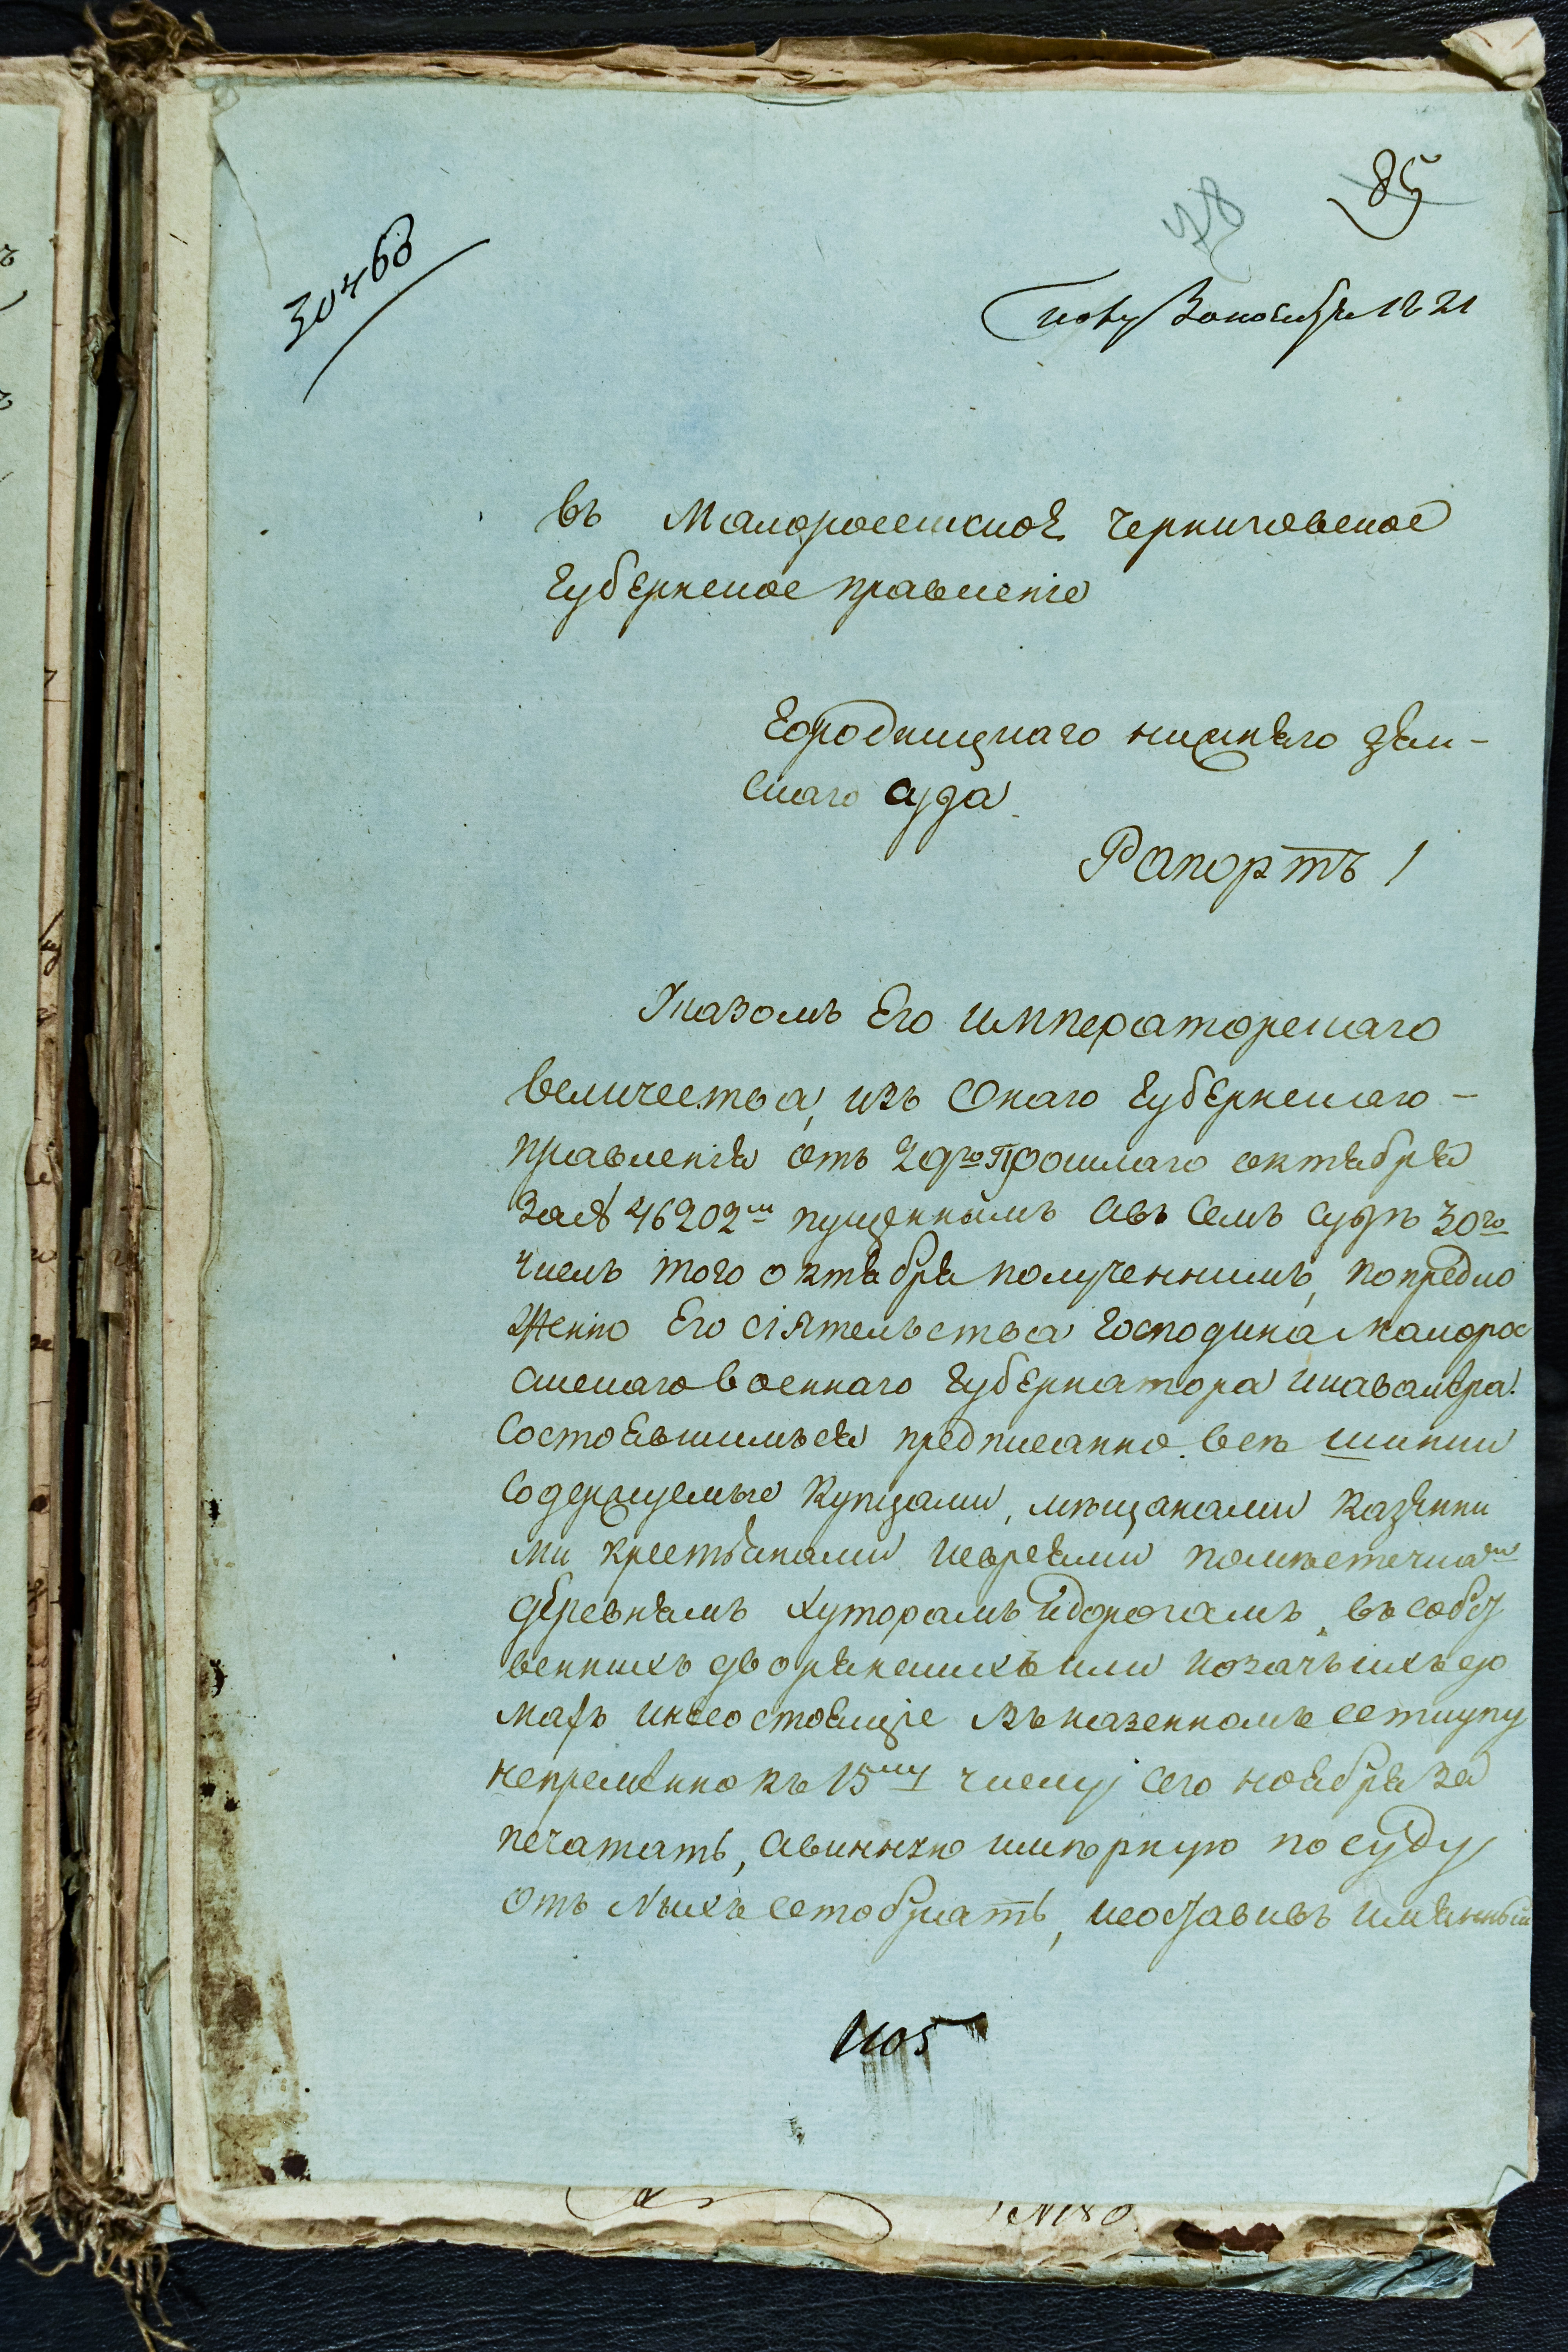 85
78
30468
ноября 1821
Въ Малоросейское Черниговское
Губернское правленіе
Городницкаго нижнего зем-
скаго суда
Рапортъ
Указомъ Его императорскаго
величества, изъ Онаго Губернскаго-
правления отъ 29го прошлаго октября
за № 46202м пущеннымъ авъ семъ судѣ 30го
числъ того октября полученнимъ, попредло
жению Его сіятельства Господина Малорос
сискаго военнаго Губернатора икавалера
состоявшимъся предписанно. всѣ шинки
содержуемые купцами, мѣщанами казенни
ми крестьянами иевреями помѣстечкам
деревнямъ хуторамъ идорогамъ, въ собст
веннихъ дворянскихъ или козачьихъ до
махъ инесостоящіе въ казенномъ
непременно къ 15му числу сего ноября за
печатать, авинную шинкорную посуду
отъ отобрать, исоставивъ имянный
1105
№180